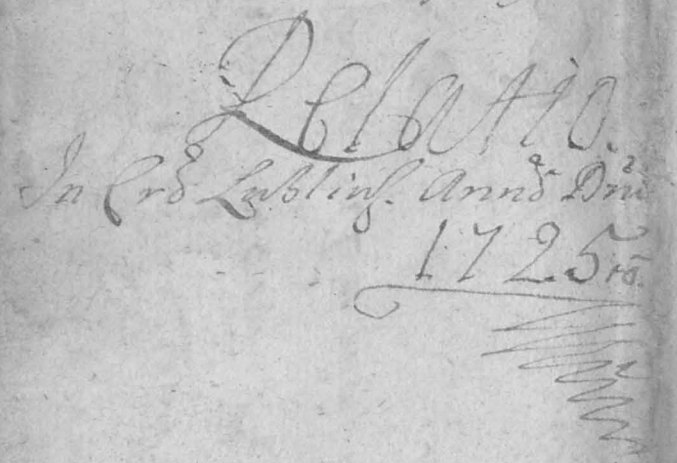 Relatio.
In Crō Lublinẽs. Annō Dnī
1725tō.